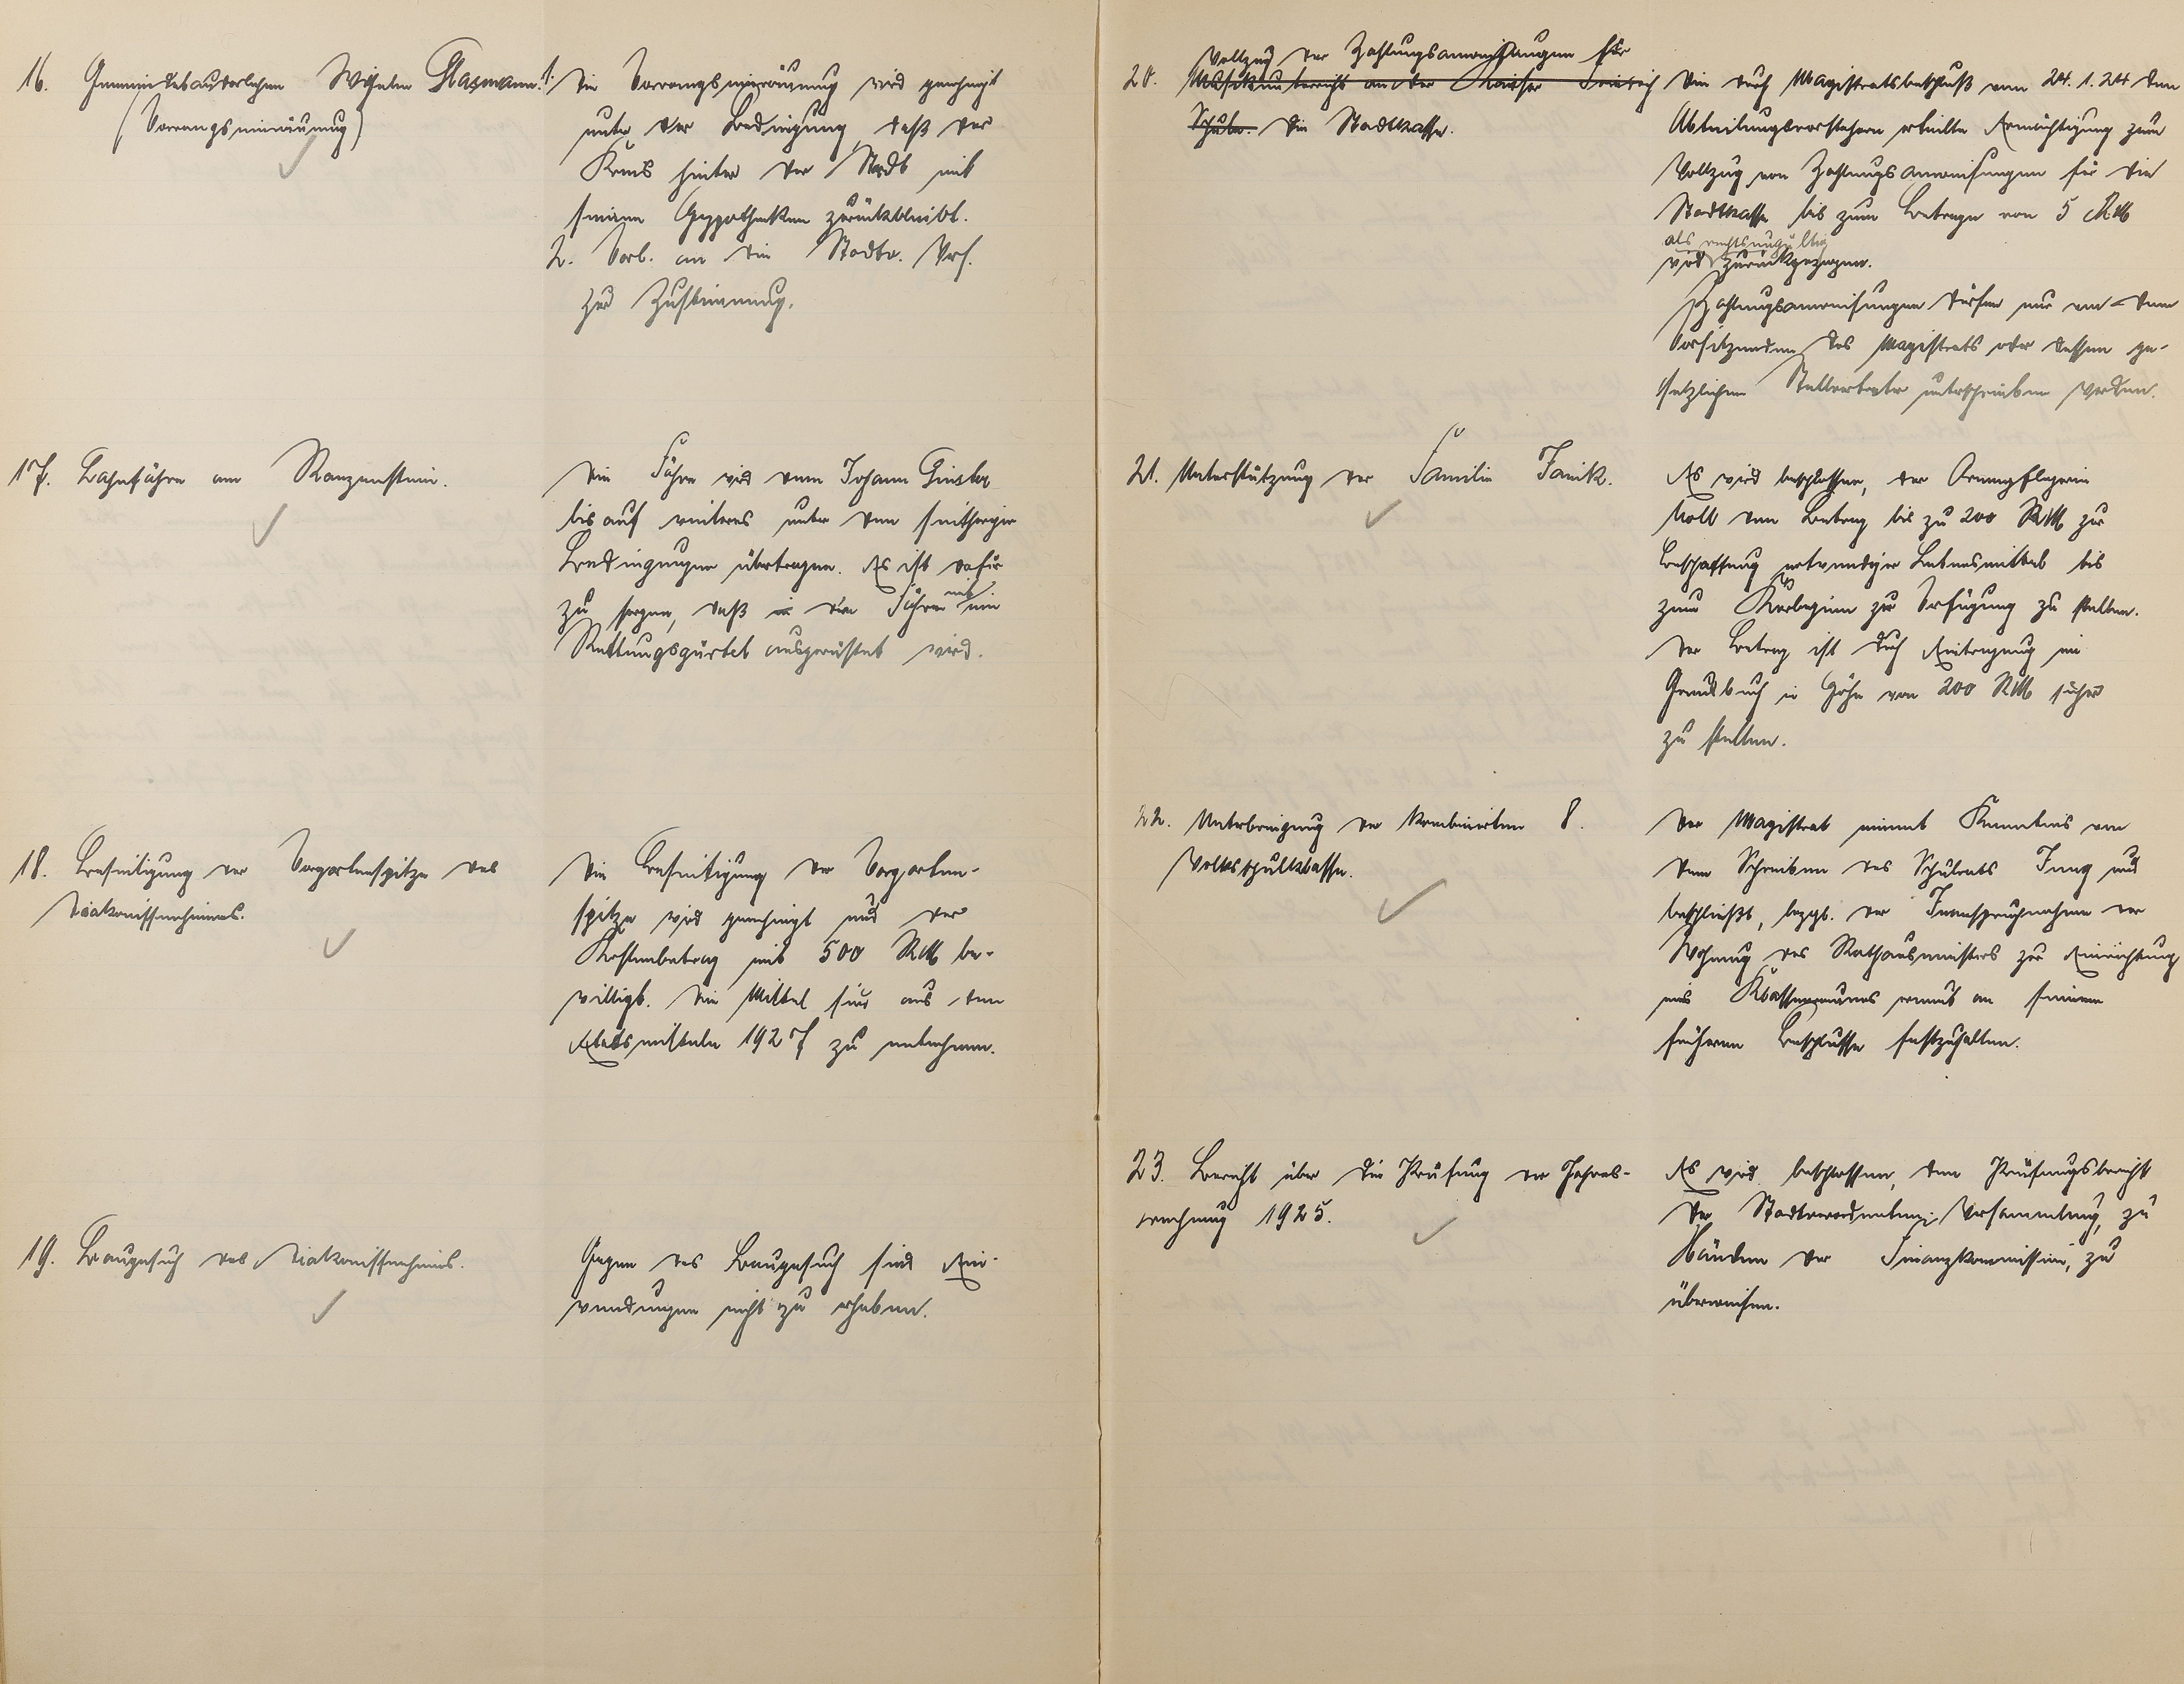 16. Gemeindebaudarlehen Wilhelm Glasmann.
(Vorrangseinräumung)
1. Die Vorrangseinräumung wird genehmigt
unter der Bedingung, daß der
Kreis hinter der Stadt mit
seinen Hypotheken zurückbleibt.
2. Vorl. an die Stadtv. Vers.
zur Zustimmung.
17. Lahnfähre am Ranzenstein.
Die Fähre wird dem Johann
bis auf weiteres unter den seitherigen
Bedingungen übertragen. Es ist dafür
zu sorgen, daß die Fähre mit ein
Rettungsgürtel ausgerüstet wird.
18. Beseitigung der Vorgartenspitze des
Diakonissenheimes.
Die Beseitigung der Vorgarten-
spitze wird genehmigt und der
Kostenbetrag mit 500 RM be-
willigt. Die Mittel sind aus den
Etatsmitteln 1927 zu entnehmen.
19. Baugesuch des Diakonissenheims.
Gegen das Baugesuch sind Ein-
wendungen nicht zu erheben.
20. Vollzug der Zahlungsanweisungen für
Musikunterricht an der Kaiser Friedrich
Schule. die Stadtkasse.
Die durch Magistratsbeschluß vom 24.1.24 den
Abteilungsvorstehern erteilte Ermächtigung zum
Vollzug von Zahlungsanweisungen für die
Stadtkasse bis zum Betrage von 5 RM
als rechtsungültig
wird zurückgezogen.
Zahlungsanweisungen dürfen nur von dem
Vorsitzenden des Magistrats oder dessen ge-
setzlichen Stellvertreter unterschrieben werden.
21. Unterstützung der Familie Janik.
Es wird beschlossen, der Armenpflegerin
Noll den Betrag bis zu 200 RM zur
Beschaffung notwendiger Lebensmittel bis
zum Kurbeginn zur Verfügung zu stellen.
Der Betrag ist durch Eintragung im
Grundbuch in Höhe von 200 RM sicher
zu stellen.
22. Unterbringung der kombinierten 8.
Volksschulklasse.
Der Magistrat nimmt Kenntnis von
dem Schreiben des Schulrats Jung und
beschließt, bezgl. der Inanspruchnahme der
Wohnung des Rathausmeisters zur Einrichtung
eines Klassenraumes erneut an seinem
früheren Beschlusse festzuhalten.
23. Bericht über die Prüfung der Jahres-
rechnung 1925.
Es wird beschlossen, den Prüfungsbericht
der Stadtverordneten-Versammlung, zu
Händen der Finanzkommission, zu
überweisen.